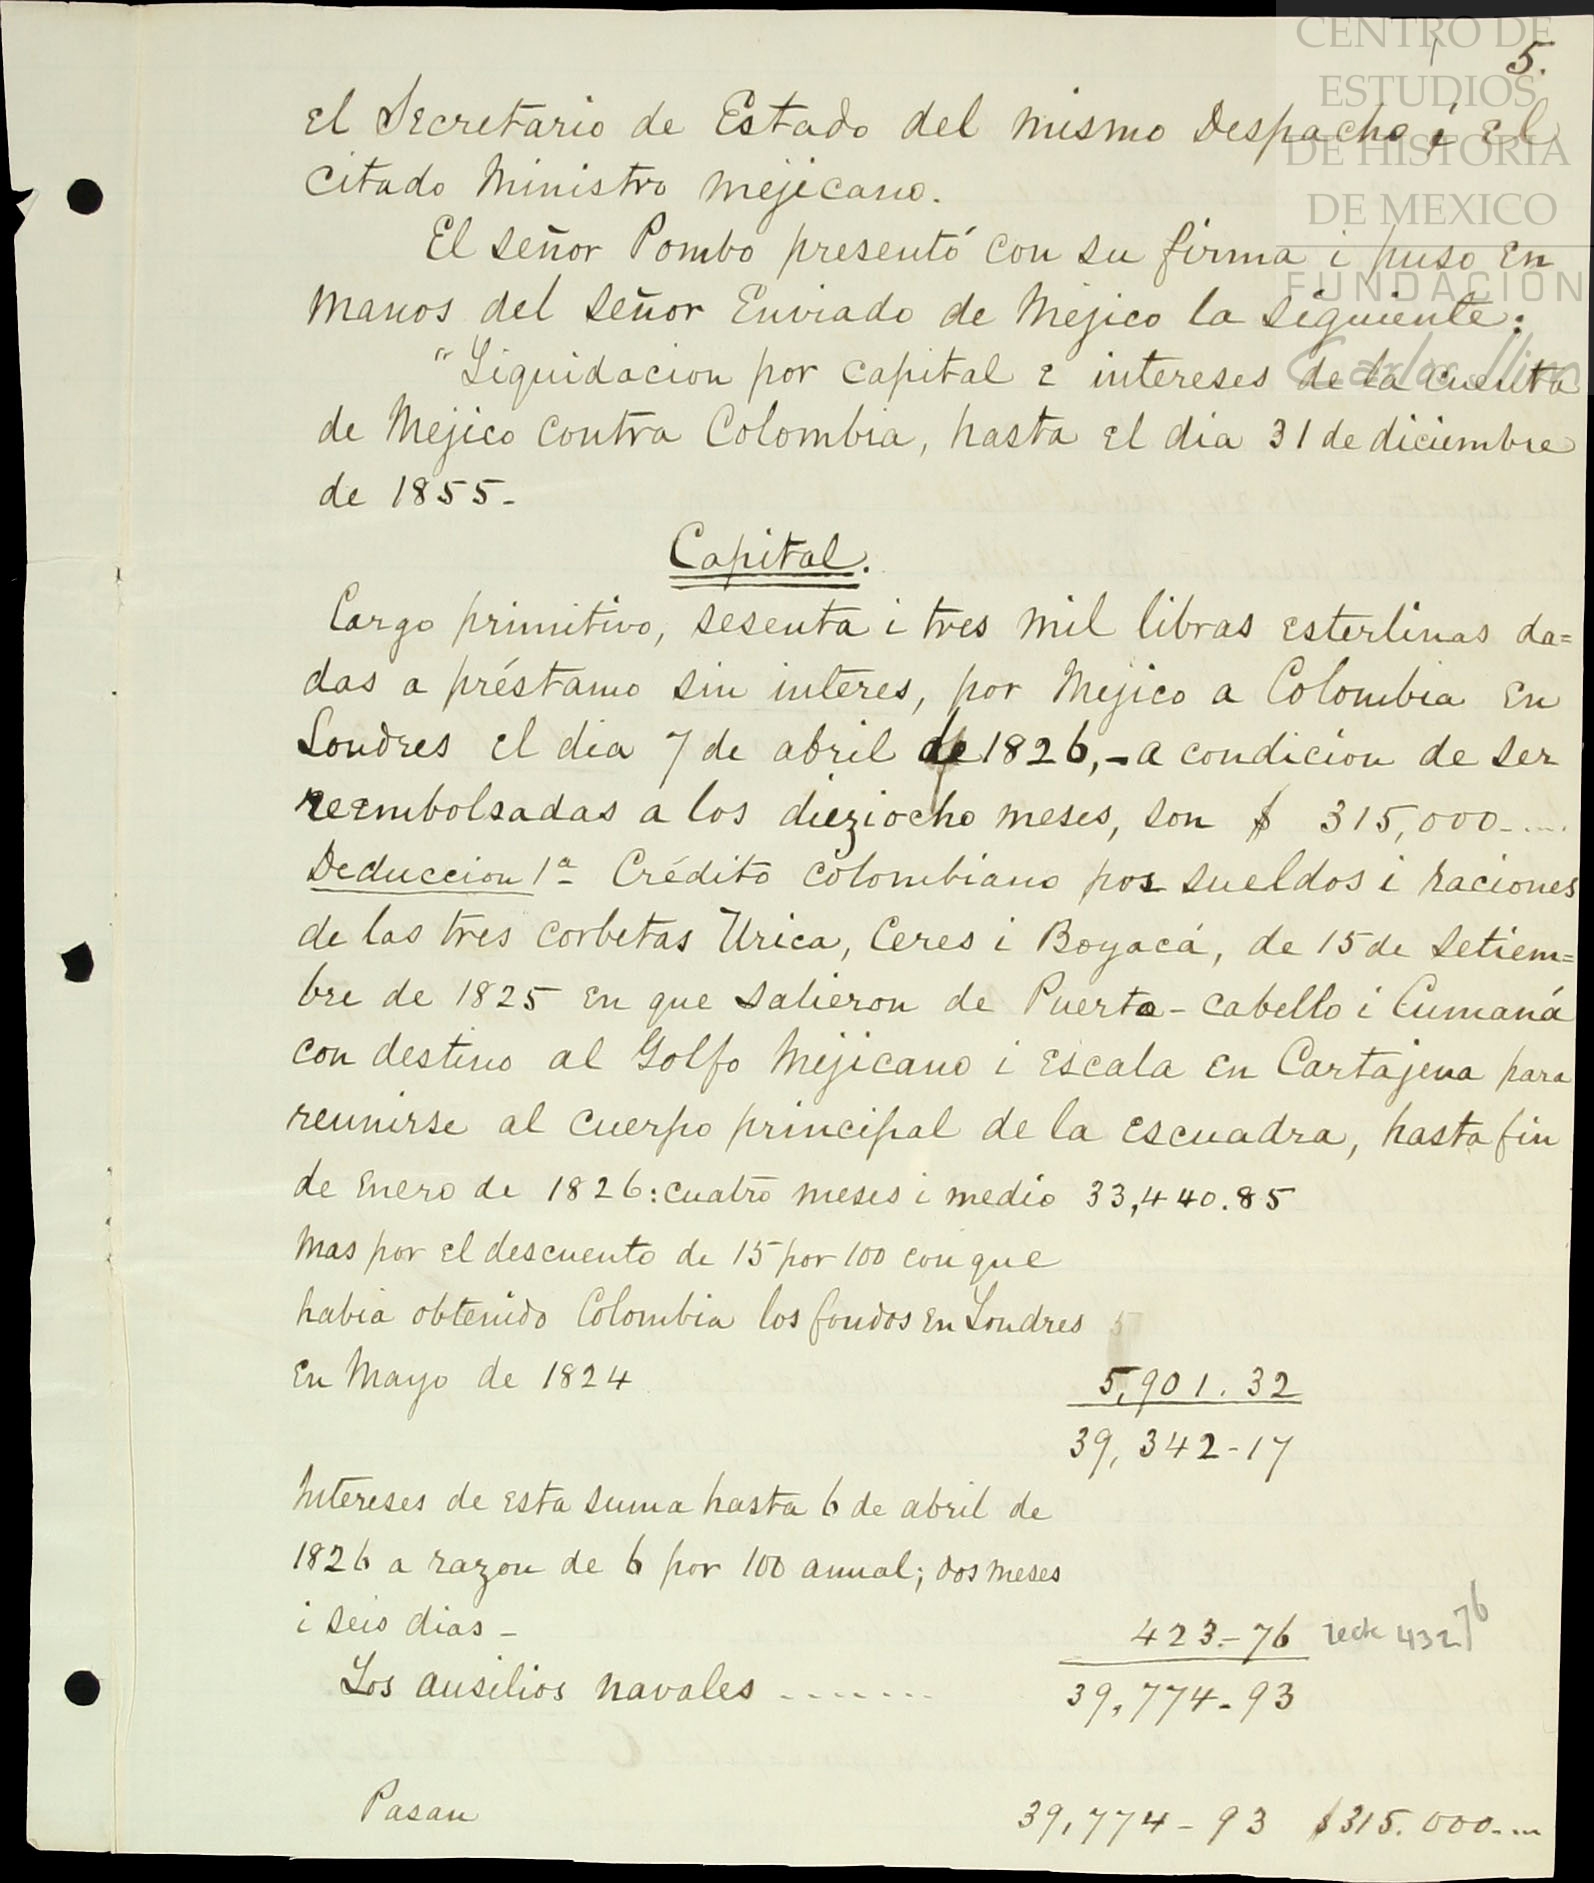 CENTRO DE
ESTUDIOS
DE HISTORIA
DE MEXICO
FUNDACIÓN
5.
el Secretario de Estado del mismo Despacho i el
citado Ministro mejicano.
El señor Pombo presentó con su firma i puso en
manos del señor Enviado de Méjico la siguiente:
"Liquidacion por capital e intereses de la cuenta
de Méjico contra Colombia, hasta el dia 31 de diciembre
de 1855-
Capital.
Cargo primitivo, sesenta i tres mil libras esterlinas da=
das a préstamo sin interes, por Méjico a Colombia en
Londres el dia 7 de abril de 1826,- a condicion de ser
reembolsadas a los dieziocho meses, son $ 315,000-....
Deduccion 1ª- Crédito colombiano por sueldos i raciones
de las tres corbetas Urica, Ceres i Boyacá, de 15 de setiem=
bre de 1825 en que salieron de Puerto-cabello i Cumaná
con destino al Golfo Mejicano i escala en Cartajena para
reunirse al cuerpo principal de la escuadra, hasta fin
de Enero de 1826: cuatro meses i medio 33,440.85
Mas por el descuento de 15 por 100 con que
habia obtenido Colombia los fondos en Londres
en Mayo de 1824 5,901.32
39,342-17
Intereses de esta suma hasta 6 de abril de
1826 a razon de 6 por 100 anual; dos meses
i seis dias- 423.-76 432 76
Los ausilios navales ....... 39,774-93
Pasan 39,774-93 $315.000-...